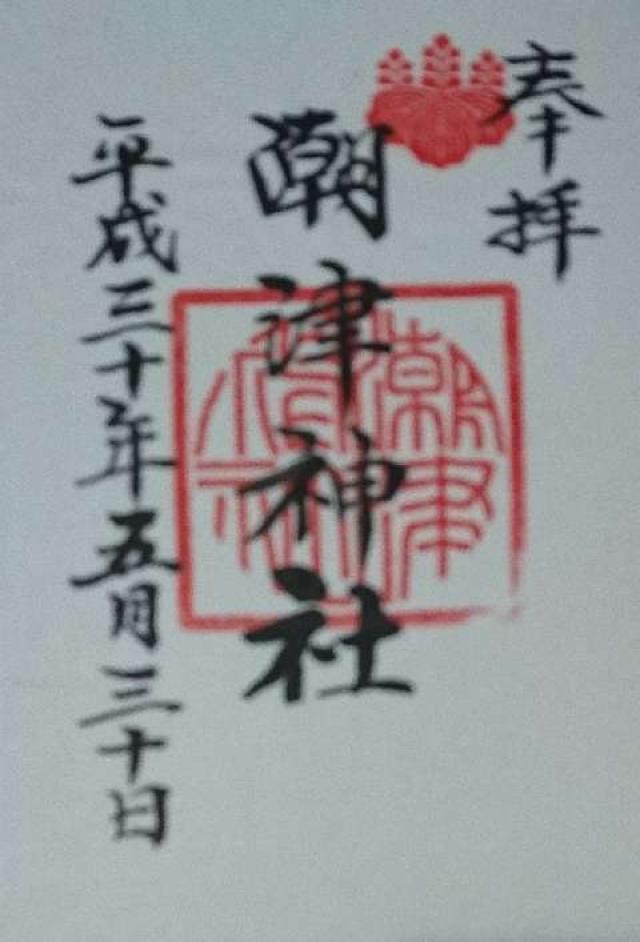 奉拝
潮津神社
平成三十年五月三十日